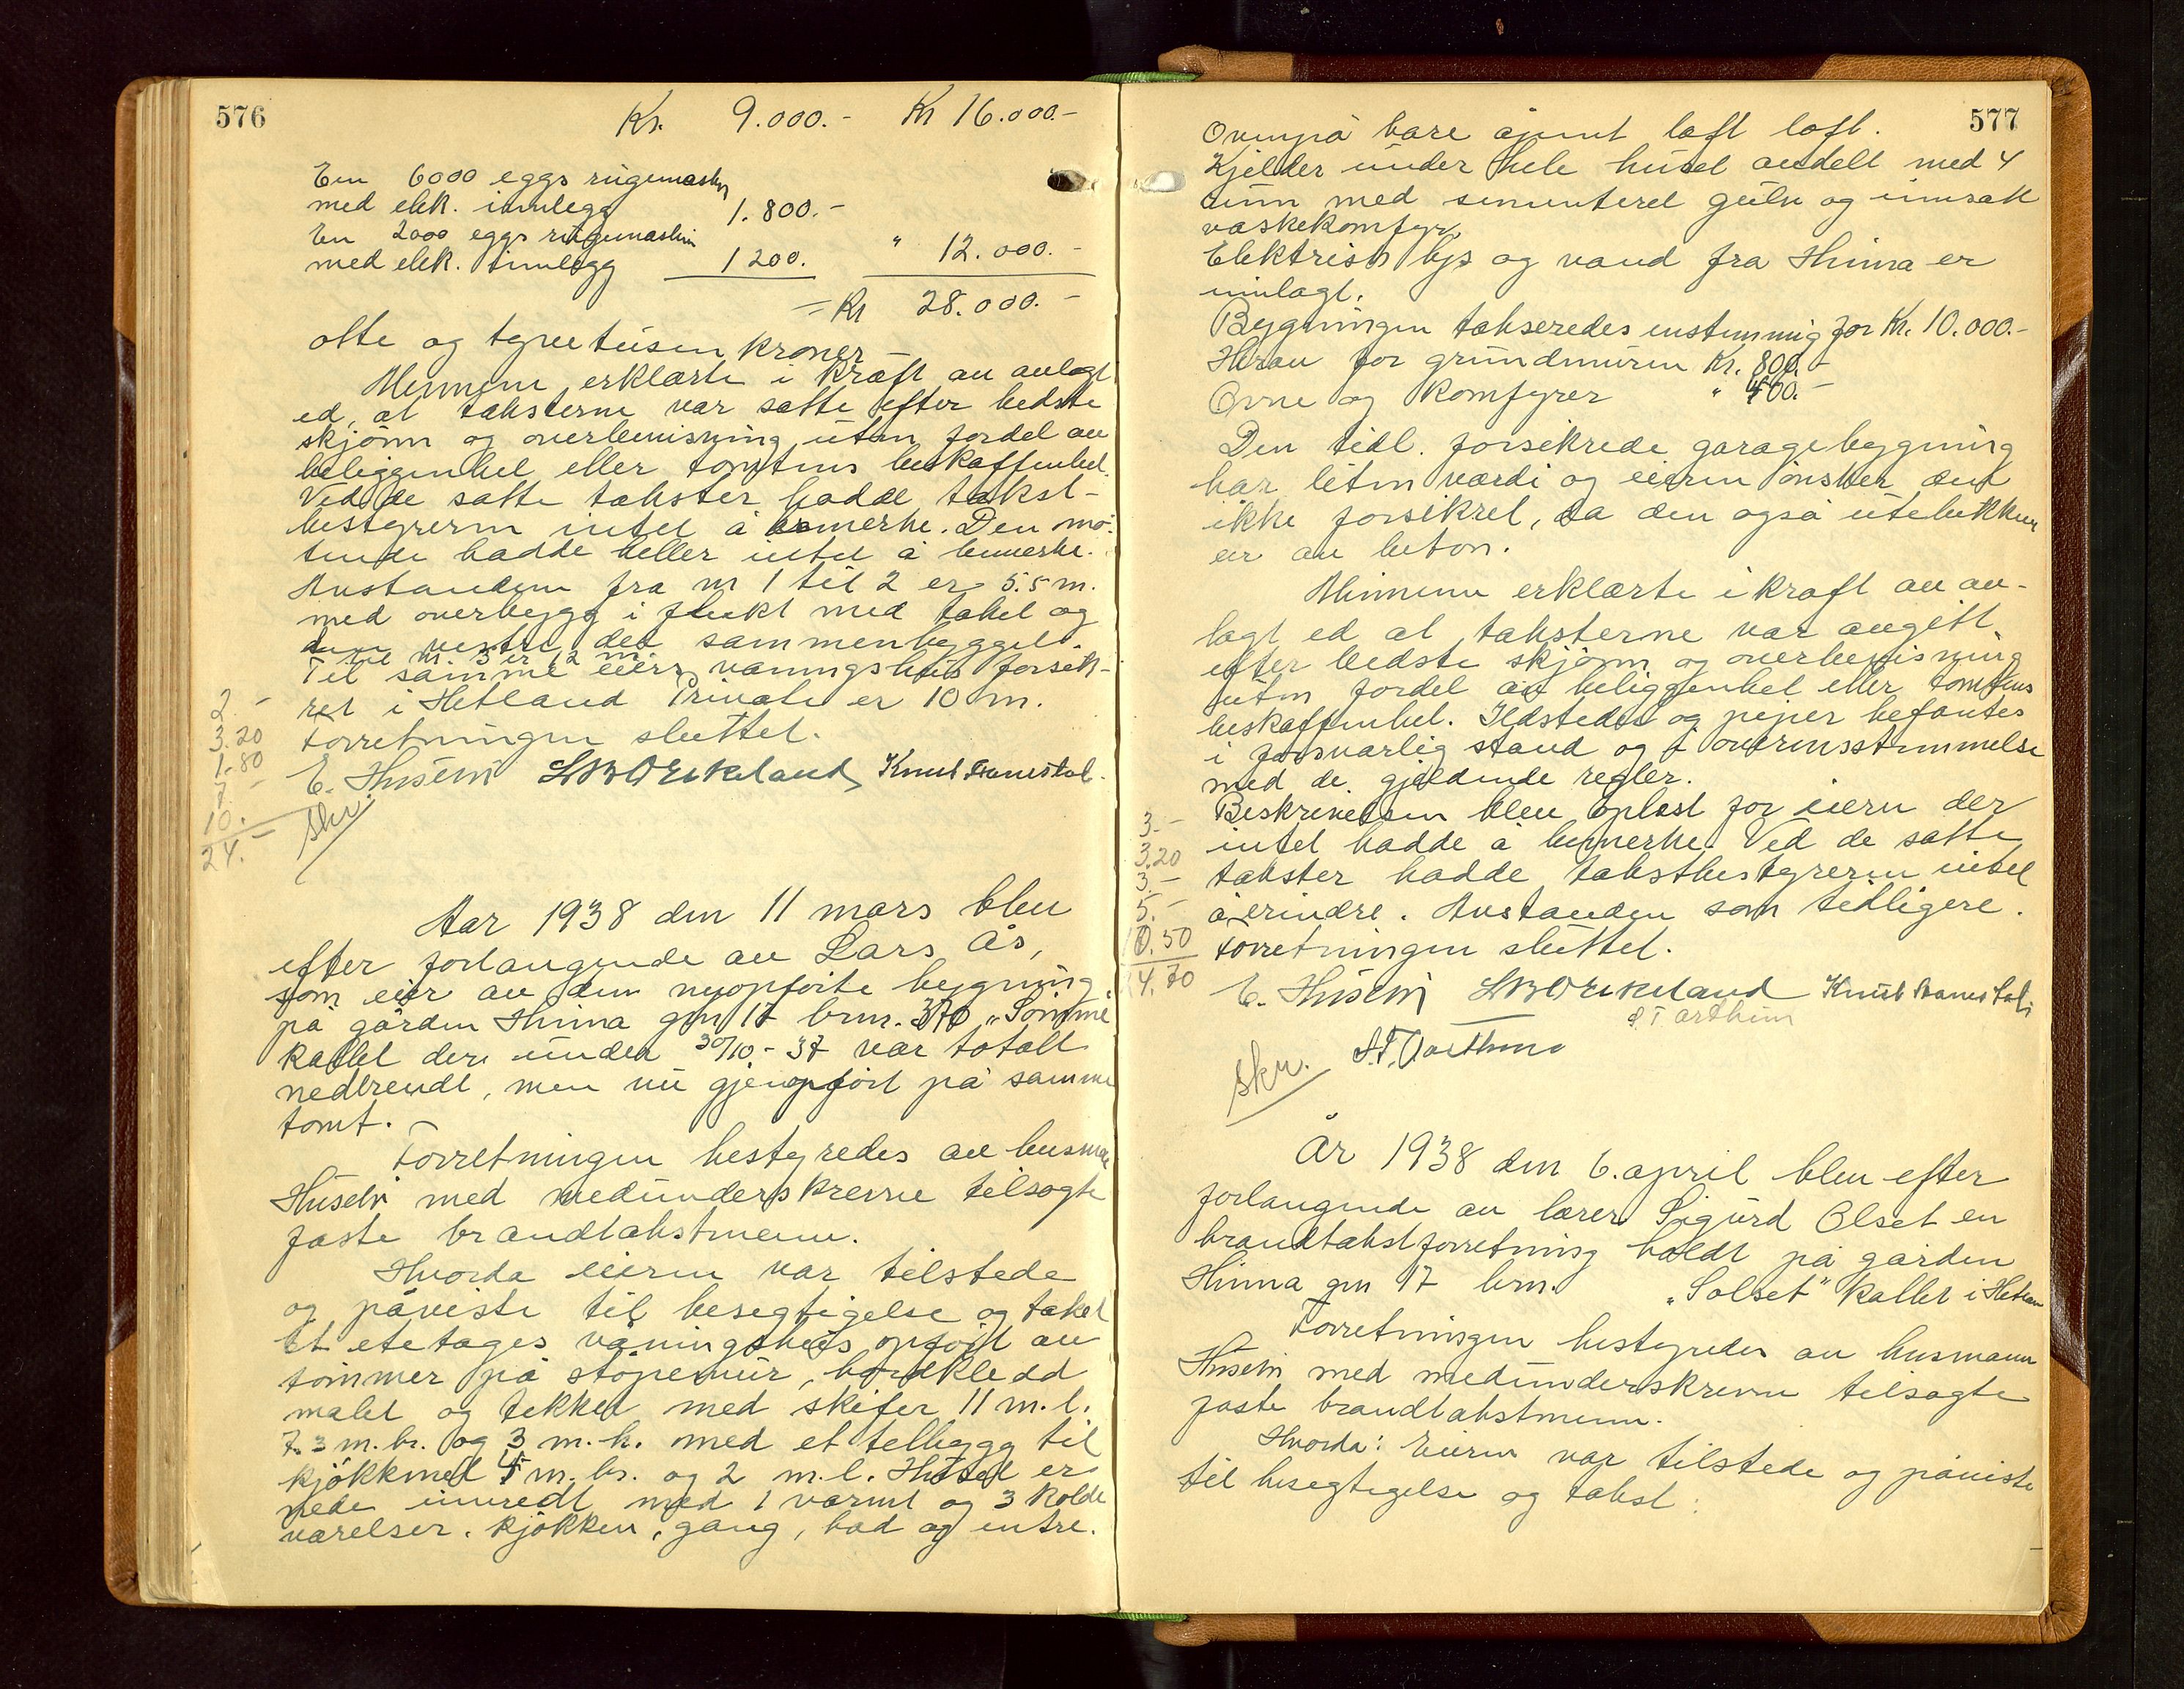 576
Kr. 9.000.- Kr 16.000.-
En 6000 eggs rugemaskin
med elek. innlegg 1.800.-
En 2000 eggs rugemaskin
med elek. innlegg 1200. " 12.000.-
= Kr 28.000.-
otte og tyvetusen kroner
Mennene erklærte i kraft av avlagt
ed, at taksterne var satte efter bedste
skjønn og overbevisning uten fordel av
beliggenhet eller tomtens beskaffenhet.
Ved de satte takster hadde takst-
bestyreren intet å bemerke. Den mø-
tende hadde heller intet å bemerke.
Avstanden fra m 1 til 2 er 5.5 m.
med overbygg i flukt med taket og
den vestre del sammenbygget.
Til nr. 3 er 12 m.
Til samme eiers våningshus forsik-
ret i Hetland Private er 10 m.
Forretningen sluttet.
E. Husebø Knut
2.-
3.20
1.80
7.-
10.-
24.-
Skr
Aar 1938 den 11 mars blev
efter forlangende av Lars Ås,
som eier av den nyopførte bygning
på gården Hinna gnr 17 brnr. 370 "
kallet der under 30/10-37 var totalt
nedbrendt, men nu gjenopført på samme
tomt.
Forretningen bestyredes av husmann
Husebø med medunderskrevne tilsagte
faste brandtakstmenn.
Hvorda eieren var tilstede
og påviste til besegtigelse og takst
Et etetages våningshus opført av
tømmer på støpemur, bordkledd
malet og tekket med skifer 11 m.l.
7.3 m.br. og 3 m.h. med et tilbygg til
kjøkkenet 4 m.br. og 2 m.l. Huset er
nede innredt med 1 varmt og 3 kolde
værelser, kjøkken, gang, bad og entre.
577
Ovenpå bare åpent loft loft.
Kjelder under hele huset avdelt med 4
rum med sementeret gulv og innsatt
vaskekomfyr.
Elektrisk lys og vand fra Hinna er
innlagt.
Bygningen takseredes enstemmig for Kr. 10.000.-
Herav for grundmuren Kr. 800.-
Ovne og komfyrer " 400.-
Den tidl. forsikrede garagebygning
har liten værdi og eieren ønsker den
ikke forsikret, da den også utelukkende
er av beton.
Mennene erklærte i kraft av av-
lagt ed at taksterne var avgitt
efter bedste skjønn og overbevisning
uten fordel av beliggenhet eller tomtens
beskaffenhet. Ildsteder og piper befantes
i forsvarlig stand og i overensstemmelse
med de gjeldende regler.
Beskrivelsen blev oplest for eieren der
intet hadde å bemerke. Ved de satte
takster hadde takstbestyreren intet
å erindre. Avstanden som tidligere.
Forretningen sluttet.
3.-
3.20
3.-
5.-
10.50
24.70
E. Husebø Knut
Skr.
År 1938 den 6. april blev efter
forlangende av lærer Sigurd Olset en
brandtakstforretning holdt på gården
Hinna gnr 17 brn. "Solset" kallet i Hetland
Forretningen bestyredes av husmann
Husebø med medunderskrevne tilsagte
faste brandtakstmenn.
Hvorda: Eieren var tilstede og påviste
til besegtigelse og takst: